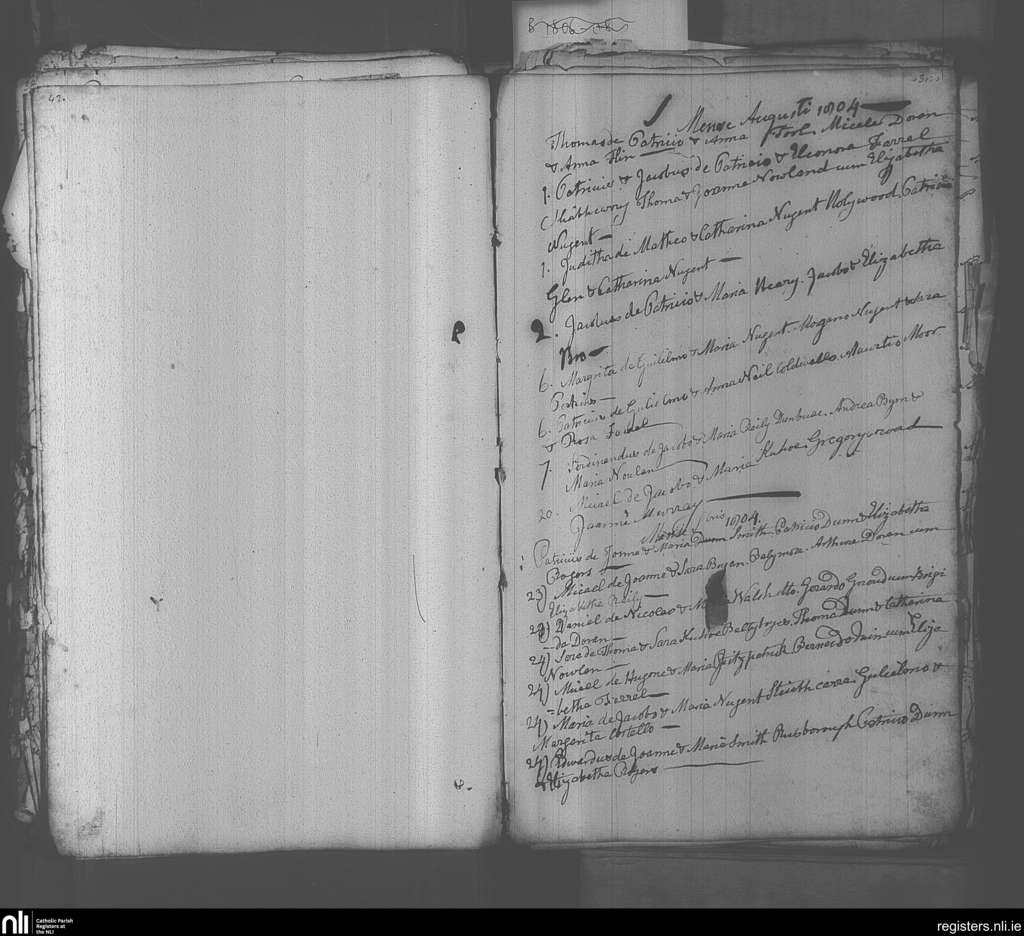 B 1806-08
42.
Mense Augusti 1804
Thomas de Patricio & Anna Tool Micale Doran
& Anna Flin
1. Patricius & Jacobus de Patricio & Eleonora Farrel
Thoma & Joanna Nowland cum Elizabetha
Nugent
1. Juditha de Matheo & Catharina Nugent Holywood Patricio
Glen & Catharina Nugent
2. Jacobus de Patricio & Maria Heary. Jacobo & Elizabetha
Bro
6. Margrita de Gulielmo & Maria Nugent Nugent & Sara
6. Patricius de Gulielmo & Anna Neil Coldwells. Mauritio Moor
& Rosa
7. Ferdinandus de Jacobo & Maria Reily Dunbuac. Andrea Byrn &
Maria Nowlan
20. Micael de Jacobo & Maria Kuhoe Gregorysroad
Joanne Murray
Mense 1804.
Patricius de Joanne & Maria Dunn Smith. Patricio Dunn & Elizabetha
Rogers
23) Micael de Joanne & Sara Bryan. Arthuro Doran cum
Elizabetha Reily
23) Daniel de Nicolao & Walsh Gerardo cum Brigi
da Doran
24) Sara de Thoma & Sara Kuhoe Thoma Dunn & Catharina
Nowlan
24) Micael de Hugone & Maria Fitzpatrick Bernardo cum Eliza
=betha Farrel
24) Maria de Jacobo & Maria Nugent Gulielmo &
Margarita Costello
24) Edwardus de Joanne & Maria Smith Rusborough Patricio Dunn
& Elizabetha Rogers
nli
Catholic Parish
Registers at
the NLI
registers.nli.ie